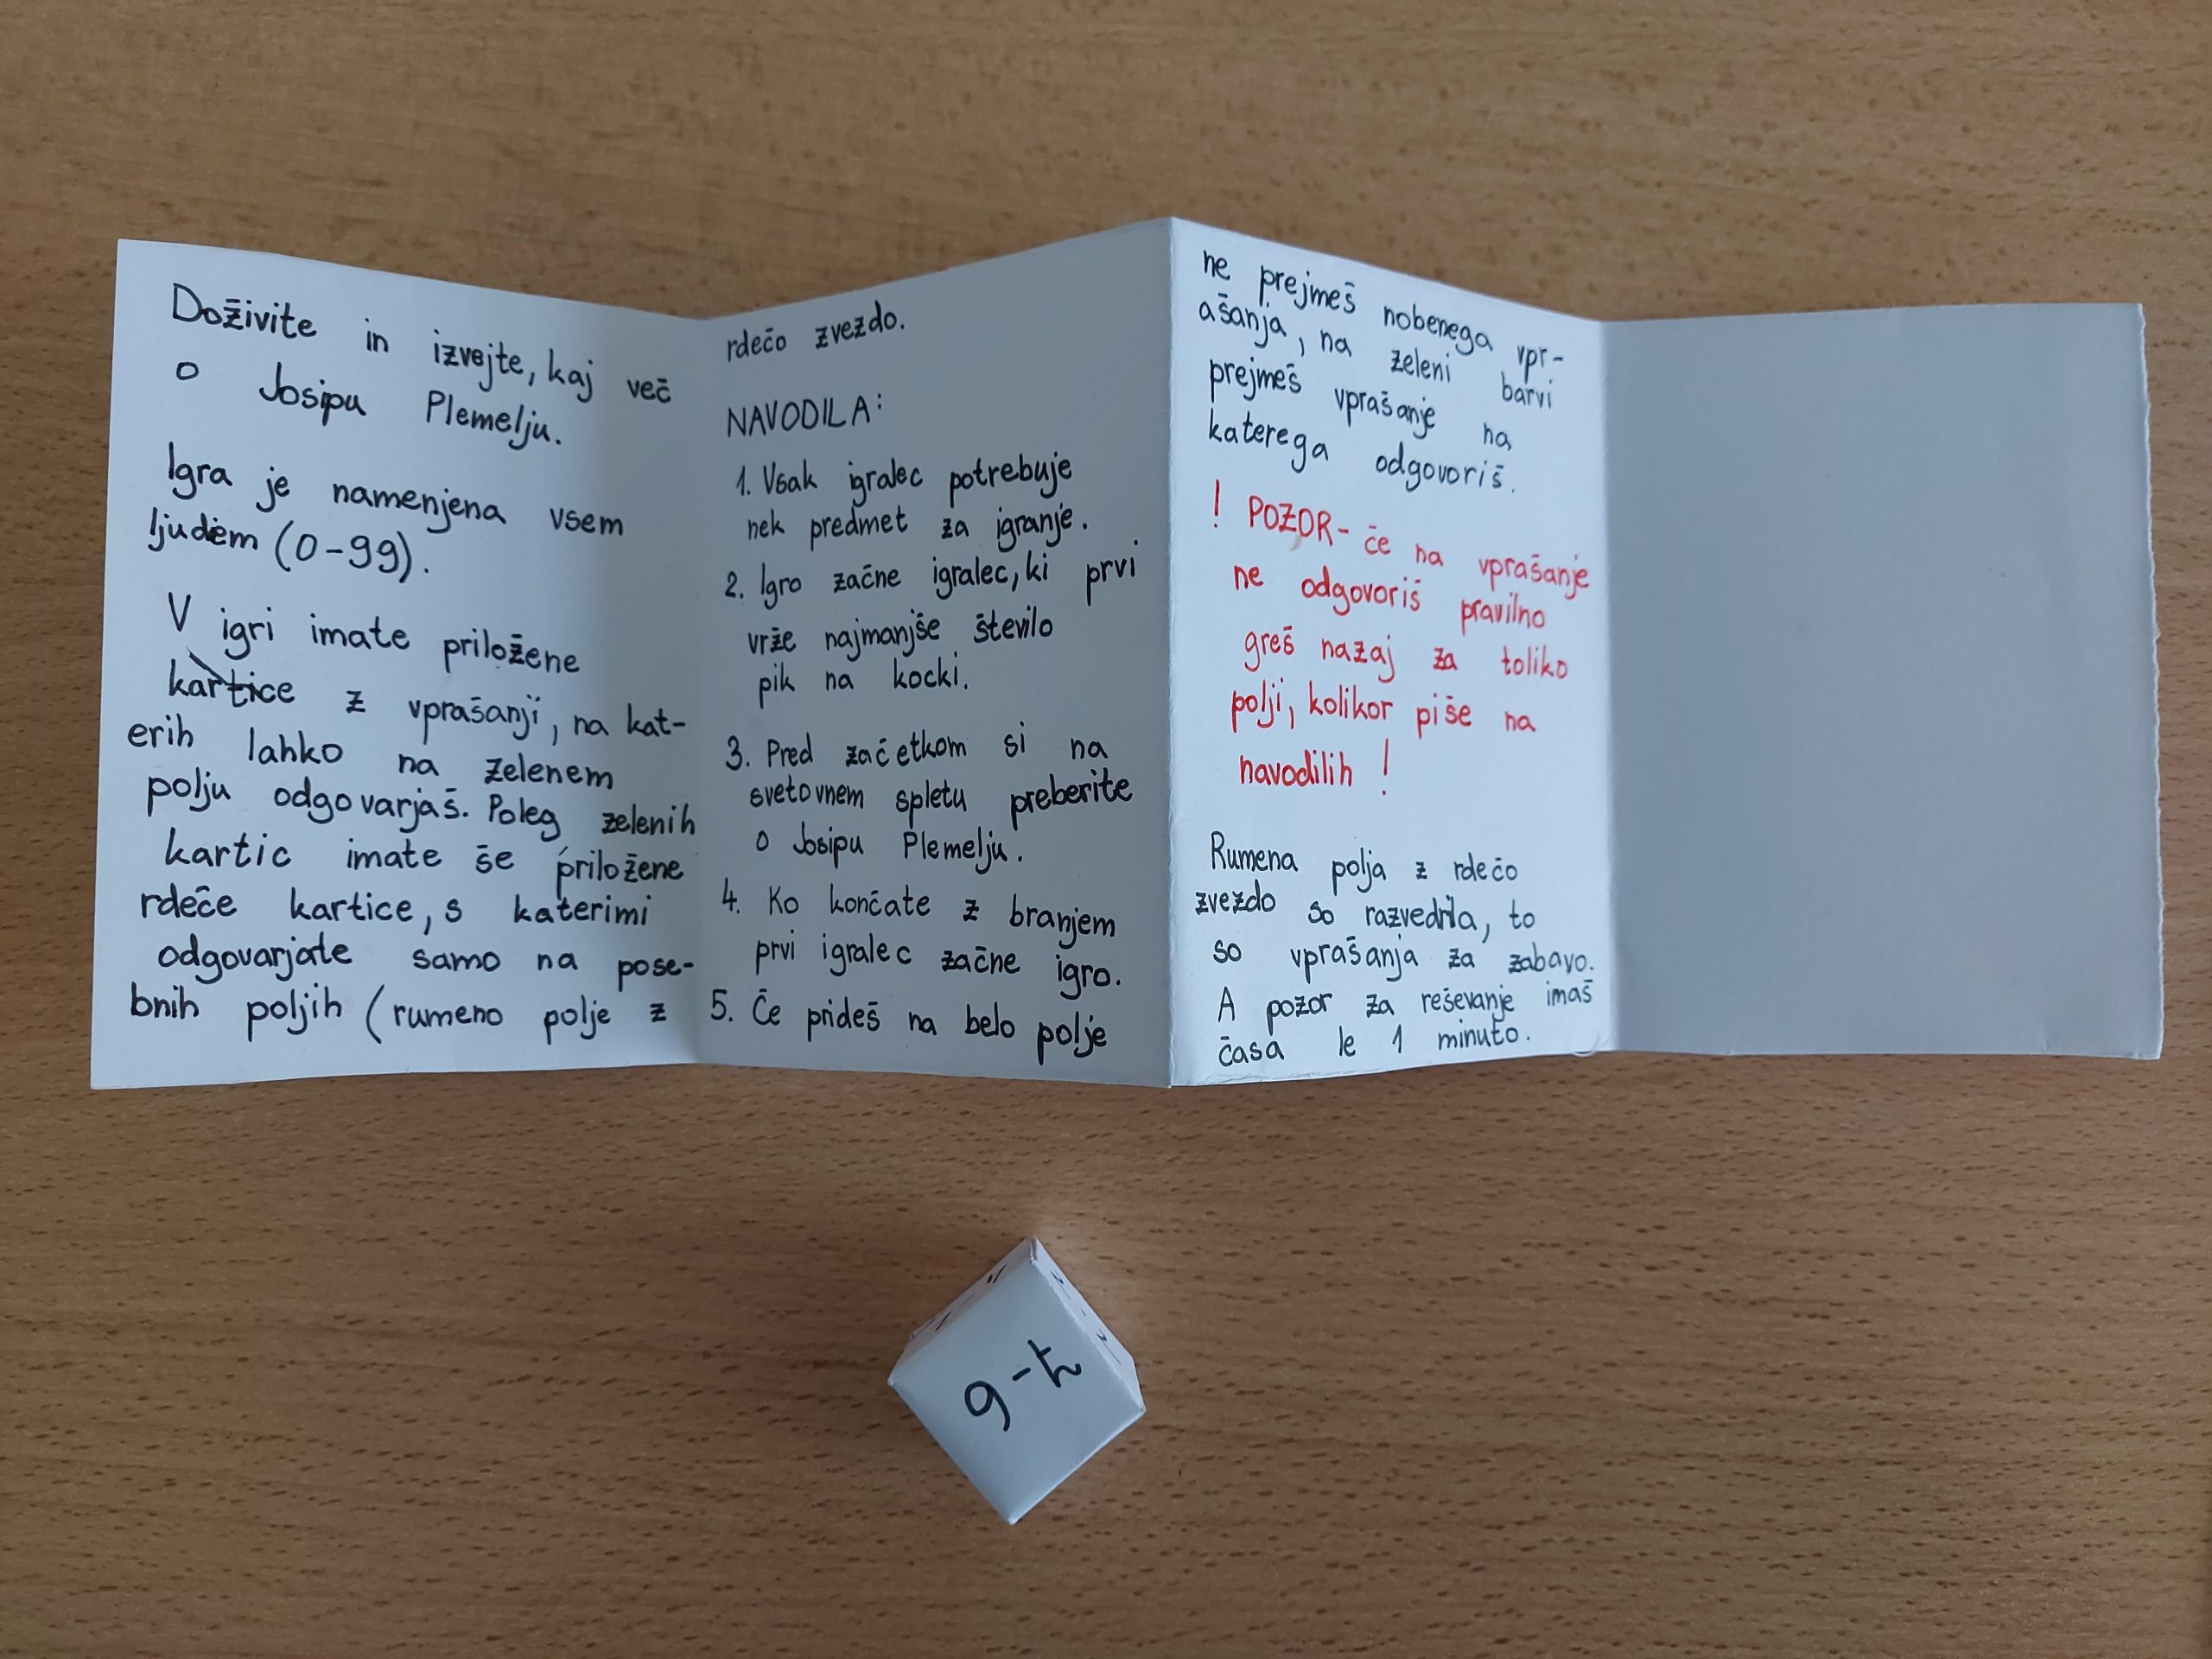 Doživite in izvejte, kaj več
o Josipu Plemelju.
Igra je namenjena vsem
ljudem (0-99).
V igri imate priložene
kartice z vprašanji, na kat-
erih lahko na zelenem
polju odgovarjaš. Poleg zelenih
kartic imate še priložene
rdeče kartice, s katerimi
odgovarjate samo na pose-
bnih poljih (rumeno polje z
rdečo zvezdo.
NAVODILA:
1. Vsak igralec potrebuje
nek predmet za igranje.
2. Igro začne igralec, ki prvi
vrže najmanjše število
pik na kocki.
3. Pred začetkom si na
svetovnem spletu preberite
o Josipu Plemelju.
4. Ko končate z branjem
prvi igralec začne igro.
5. Če prideš na belo polje
ne prejmeš nobenega vpr-
ašanja, na zeleni barvi
prejmeš vprašanje na
katerega odgovoriš.
! POZOR- če na vprašanje
ne odgovoriš pravilno
greš nazaj za toliko
polji, kolikor piše na
navodilih !
Rumena polja z rdečo
zvezdo so razvedrila, to
so vprašanja za zabavo.
A pozor za reševanje imaš
časa le 1 minuto.